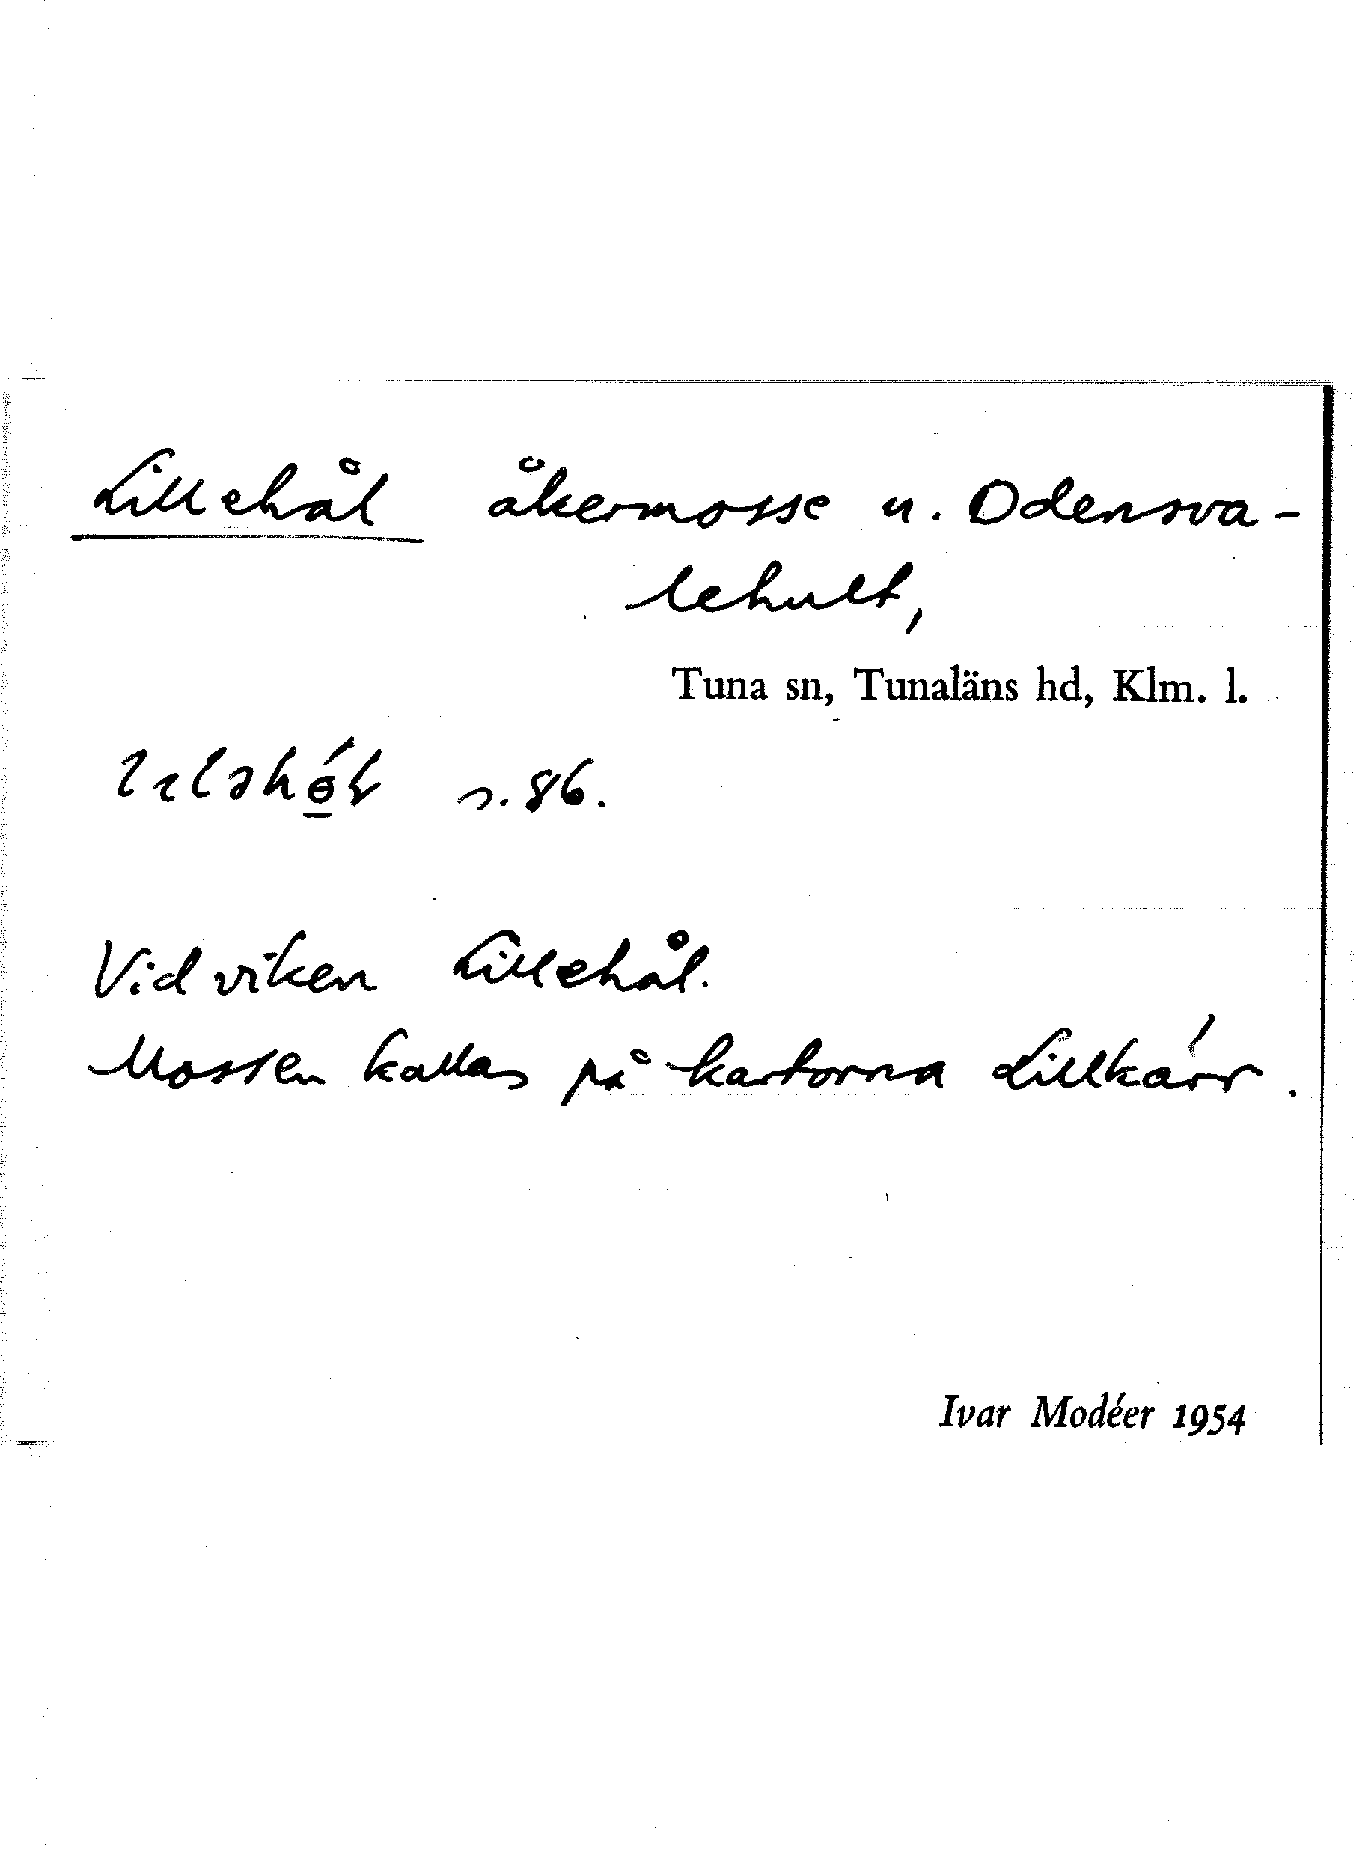 Lillehål åkermosse u. Odensva-
lehult,
Tuna sn, Tunaläns hd, Klm. l.
s. 86.
Vid viken Lillehål.
Mossen kallas på kartorna Lillkärr.
Ivar Modéer 1954